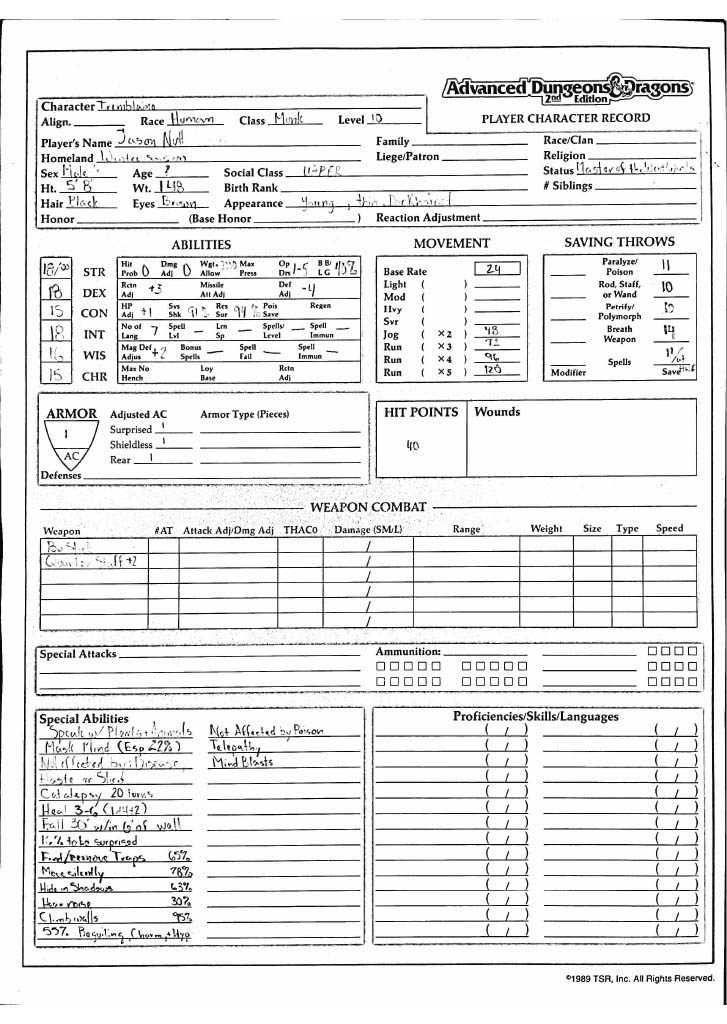 Advanced Dungeons & Dragons
2nd Edition
PLAYER CHARACTER RECORD
Character Tremblaine
Align. Race Human Class Monk Level 10
Player's Name Jason Null Family Race/Clan
Homeland Liege/Patron Religion
Sex Male Age ? Social Class UPPER Status Master of the
Ht. 5'8" Wt. 148 Birth Rank # Siblings
Hair Black Eyes Brown Appearance Young, thin,
Honor (Base Honor ) Reaction Adjustment
ABILITIES
18/00 STR Hit Prob 0 Dmg Adj 0 Wgt. Allow Max Press Op Drs 1-5 B B/ L G
18 DEX Rctn Adj +3 Missile Att Adj Def Adj -4
15 CON HP Adj +1 Sys Shk 91% Res Sur 94 Pois Save Regen
18 INT No of Lang 7 Spell Lvl — Lrn Sp — Spells/ Level — Spell Immun —
16 WIS Mag Def Adjus +2 Bonus Spells — Spell Fail — Spell Immun —
15 CHR Max No Hench Loy Base Rctn Adj
MOVEMENT
Base Rate 24
Light ( )
Mod ( )
Hvy ( )
Svr ( )
Jog ( ×2 ) 48
Run ( ×3 ) 72
Run ( ×4 ) 96
Run ( ×5 ) 120
SAVING THROWS
Paralyze/ Poison 11
Rod, Staff, or Wand 10
Petrify/ Polymorph 10
Breath Weapon 14
Spells 11/
Modifier Save
ARMOR Adjusted AC Armor Type (Pieces)
1 Surprised 1
Shieldless 1
AC Rear 1
Defenses
HIT POINTS Wounds
40
WEAPON COMBAT
Weapon #AT Attack Adj/Dmg Adj THAC0 Damage (SM/L) Range Weight Size Type Speed
Bo Stick /
Quarter Staff +2 /
/
/
/
/
Special Attacks
Ammunition:
Special Abilities
Speak w/ Plants + Animals
Mask Mind (Esp 22%)
Not effected by: Disease,
Haste or Slow
Catalepsy 20 turns
Heal 3-6 (1d4+2)
Fall 30' w/in 6' of wall
to be surprised
Find/Remove Traps 65%
Move silently 78%
Hide in Shadows 63%
Hear noise 30%
Climb walls 95%
55% Beguiling, Charm, + Hyp
Not Affected by Poison
Telepathy
Mind Blasts
Proficiencies/Skills/Languages
( / ) ( / )
( / ) ( / )
( / ) ( / )
( / ) ( / )
( / ) ( / )
( / ) ( / )
( / ) ( / )
( / ) ( / )
( / ) ( / )
( / ) ( / )
( / ) ( / )
( / ) ( / )
( / ) ( / )
( / ) ( / )
©1989 TSR, Inc. All Rights Reserved.